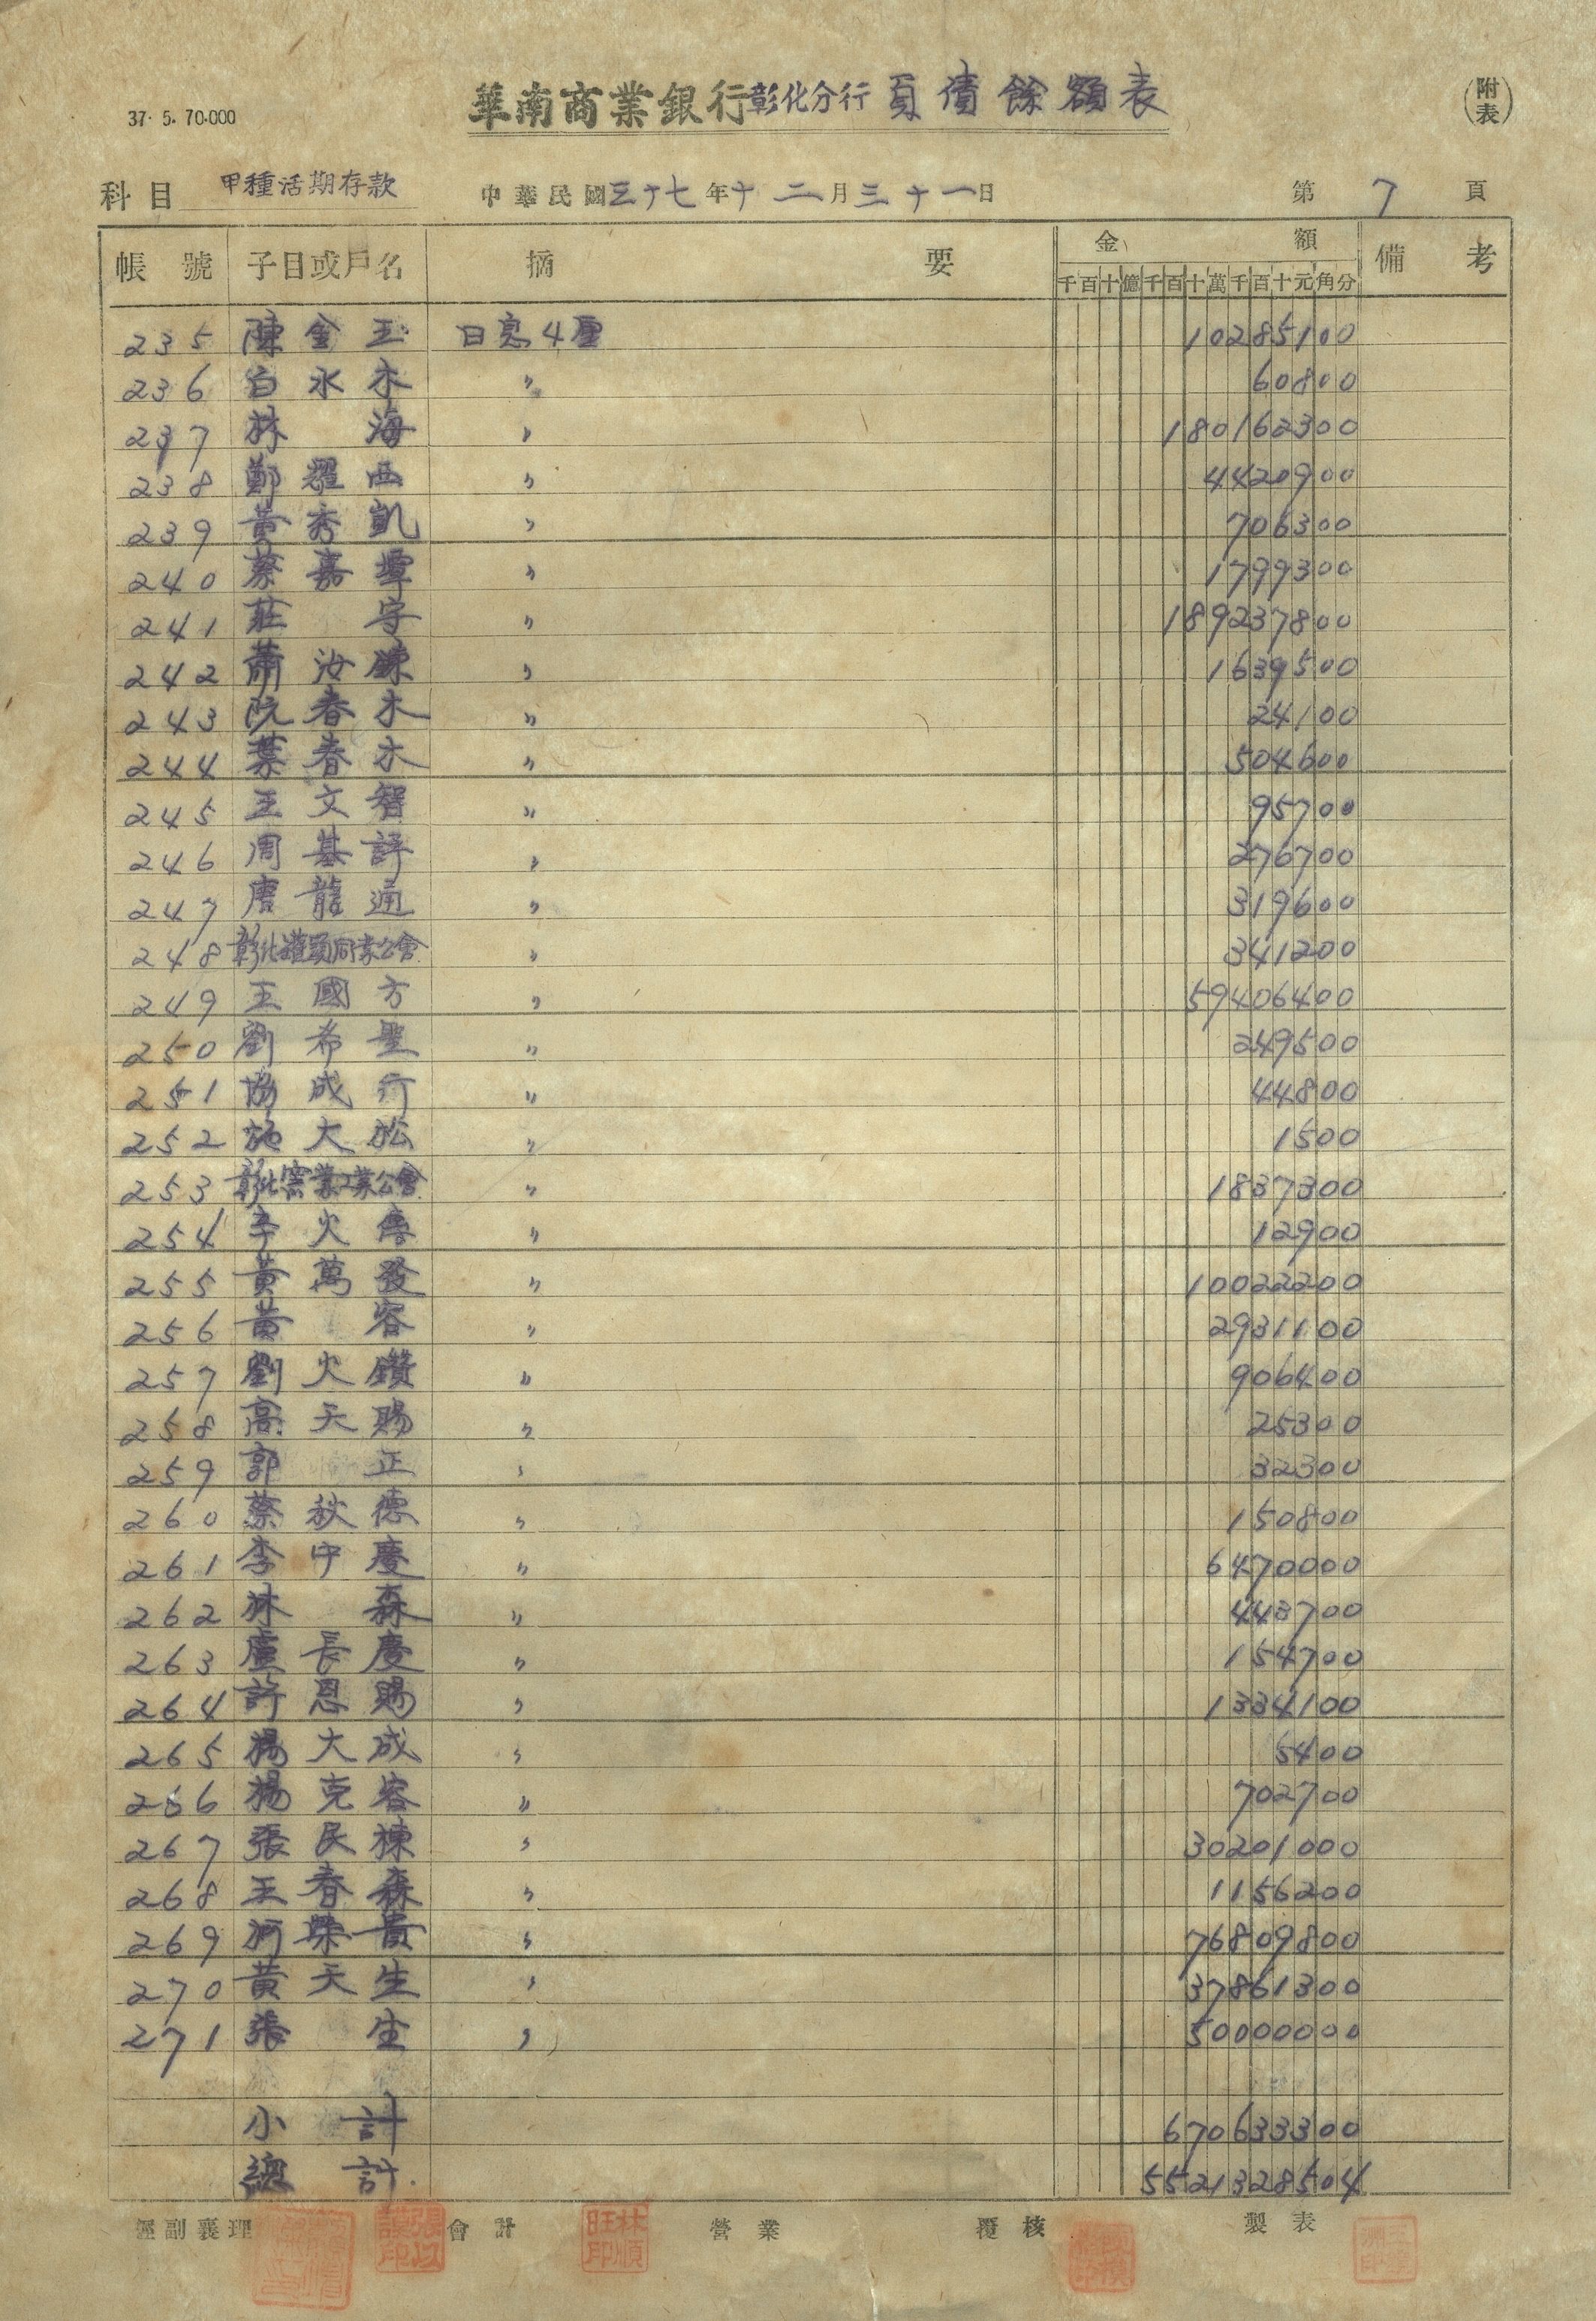 37. 5. 70.000
華南商業銀行彰化分行負債餘額表
(附表)
科目 甲種活期存款 中華民國三十七年十二月三十一日 第 7 頁
帳號 子目或戶名 摘要 金額 備考
千百十億千百十萬千百十元角分
235 陳金玉 日息4厘 10285100
236 白水木 〃 60800
237 林海 〃 180162300
238 鄭耀西 〃 4420900
239 黃秀凱 〃 706300
240 蔡嘉 〃 1799300
241 莊守 〃 189237800
242 蕭汝鍊 〃 1639500
243 阮春木 〃 24100
244 葉春木 〃 504600
245 王文智 〃 95700
246 周基評 〃 276700
247 唐龍通 〃 319600
248 彰化罐頭同業公會 〃 341200
249 王國方 〃 59406400
250 劉希聖 〃 249500
251 協成行 〃 44800
252 施大松 〃 1500
253 彰化窯業工業公會 〃 1837300
254 辛火 〃 12900
255 黃萬發 〃 10022200
256 黃容 〃 2931100
257 劉火鑽 〃 906400
258 高天賜 〃 25300
259 郭正 〃 32300
260 蔡秋德 〃 150800
261 李中慶 〃 6470000
262 林森 〃 443700
263 盧長慶 〃 154700
264 許恩賜 〃 1334100
265 楊大成 〃 5400
266 楊克容 〃 702700
267 張民棟 〃 30201000
268 王春森 〃 1156200
269 河柴貴 〃 76809800
270 黃天生 〃 37861300
271 張生 〃 50000000
小計 670633300
總計 5521328504
經副襄理 會計 營業 覆核 製表
林順旺印